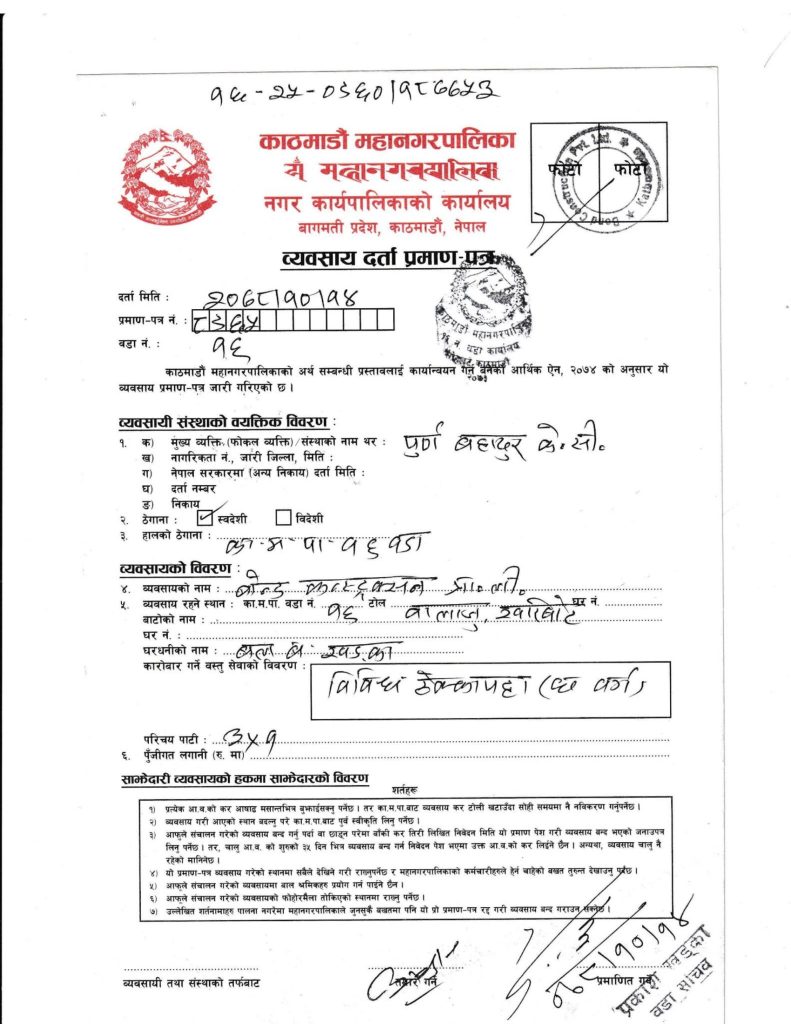 काठमाडौं महानगरपालिका
यैं महानगरपालिका
नगर कार्यपालिकाको कार्यालय
बागमती प्रदेश, काठमाडौं, नेपाल
फोटो फोटो
Bond Construction Pvt. Ltd. Kathmandu
व्यवसाय दर्ता प्रमाण-पत्र
दर्ता मिति : २०७८।१०।१४
प्रमाण-पत्र नं. :
वडा नं. : १६
काठमाडौं महानगरपालिका
१६ नं. वडा कार्यालय
काठमाडौं महानगरपालिकाको अर्थ सम्बन्धी प्रस्तावलाई कार्यान्वयन गर्न बनेको आर्थिक ऐन, २०७४ को अनुसार यो
व्यवसाय प्रमाण-पत्र जारी गरिएको छ ।
व्यवसायी संस्थाको वयक्तिक विवरण :
१. क) मुख्य व्यक्ति (फोकल व्यक्ति)/संस्थाको नाम थर : पुर्ण बहादुर के.सी.
ख) नागरिकता नं., जारी जिल्ला, मिति :
ग) नेपाल सरकारमा (अन्य निकाय) दर्ता मिति :
घ) दर्ता नम्बर
ङ) निकाय
२. ठेगाना : स्वदेशी विदेशी
३. हालको ठेगाना : का-म-पा-१६ वडा
व्यवसायको विवरण :
४. व्यवसायको नाम : बोन्ड कन्स्ट्रक्सन प्रा.ली.
५. व्यवसाय रहने स्थान : का.म.पा. वडा नं. १६ टोल बालाजु, घर नं.
बाटोको नाम :
घर नं. :
घरधनीको नाम : बल ब. खड्का
कारोबार गर्ने वस्तु सेवाको विवरण : विविध ठेक्कापट्टा (घ वर्ग)
परिचय पाटी : ३x१
६. पुँजीगत लगानी (रु. मा)
साझेदारी व्यवसायको हकमा साझेदारको विवरण
शर्तहरू
१) प्रत्येक आ.व.को कर आषाढ मसान्तभित्र बुझाईसक्नु पर्नेछ । तर का.म.पा.बाट व्यवसाय कर टोली खटाउँदा सोही समयमा नै नविकरण गर्नुपर्नेछ ।
२) व्यवसाय गरी आएको स्थान बदल्नु परे का.म.पा.बाट पुर्व स्वीकृति लिनु पर्नेछ ।
३) आफुले संचालन गरेको व्यवसाय बन्द गर्नु पर्दा वा छाड्न परेमा बाँकी कर तिरी लिखित निवेदन मिति यो प्रमाण पेश गरी व्यवसाय बन्द भएको जनाउपत्र
लिनु पर्नेछ । तर, चालु आ.व. को शुरुको ३५ दिन भित्र व्यवसाय बन्द गर्न निवेदन पेश भएमा उक्त आ.व.को कर लिईने छैन । अन्यथा, व्यवसाय चालु नै
रहेको मानिनेछ ।
४) यो प्रमाण-पत्र व्यवसाय गरेको स्थानमा सबैले देखिने गरी राख्नुपर्नेछ र महानगरपालिकाको कर्मचारीहरुले हेर्न चाहेको बखत तुरुन्त देखाउनु पर्नेछ ।
५) आफुले संचालन गरेको व्यवसायमा बाल श्रमिकहरु प्रयोग गर्न पाईने छैन ।
६) आफुले संचालन गरेको व्यवसायको फोहोरमैला तोकिएको स्थानमा राख्नु पर्नेछ ।
७) उल्लेखित शर्तनामाहरु पालना नगरेमा महानगरपालिकाले जुनसुकै बखतमा पनि यो प्रमाण-पत्र रद्द गरी व्यवसाय बन्द गराउन सक्नेछ ।
व्यवसायी तथा संस्थाको तर्फबाट
तयार गर्ने
प्रमाणित गर्ने
प्रकाश खड्का
वडा सचिव